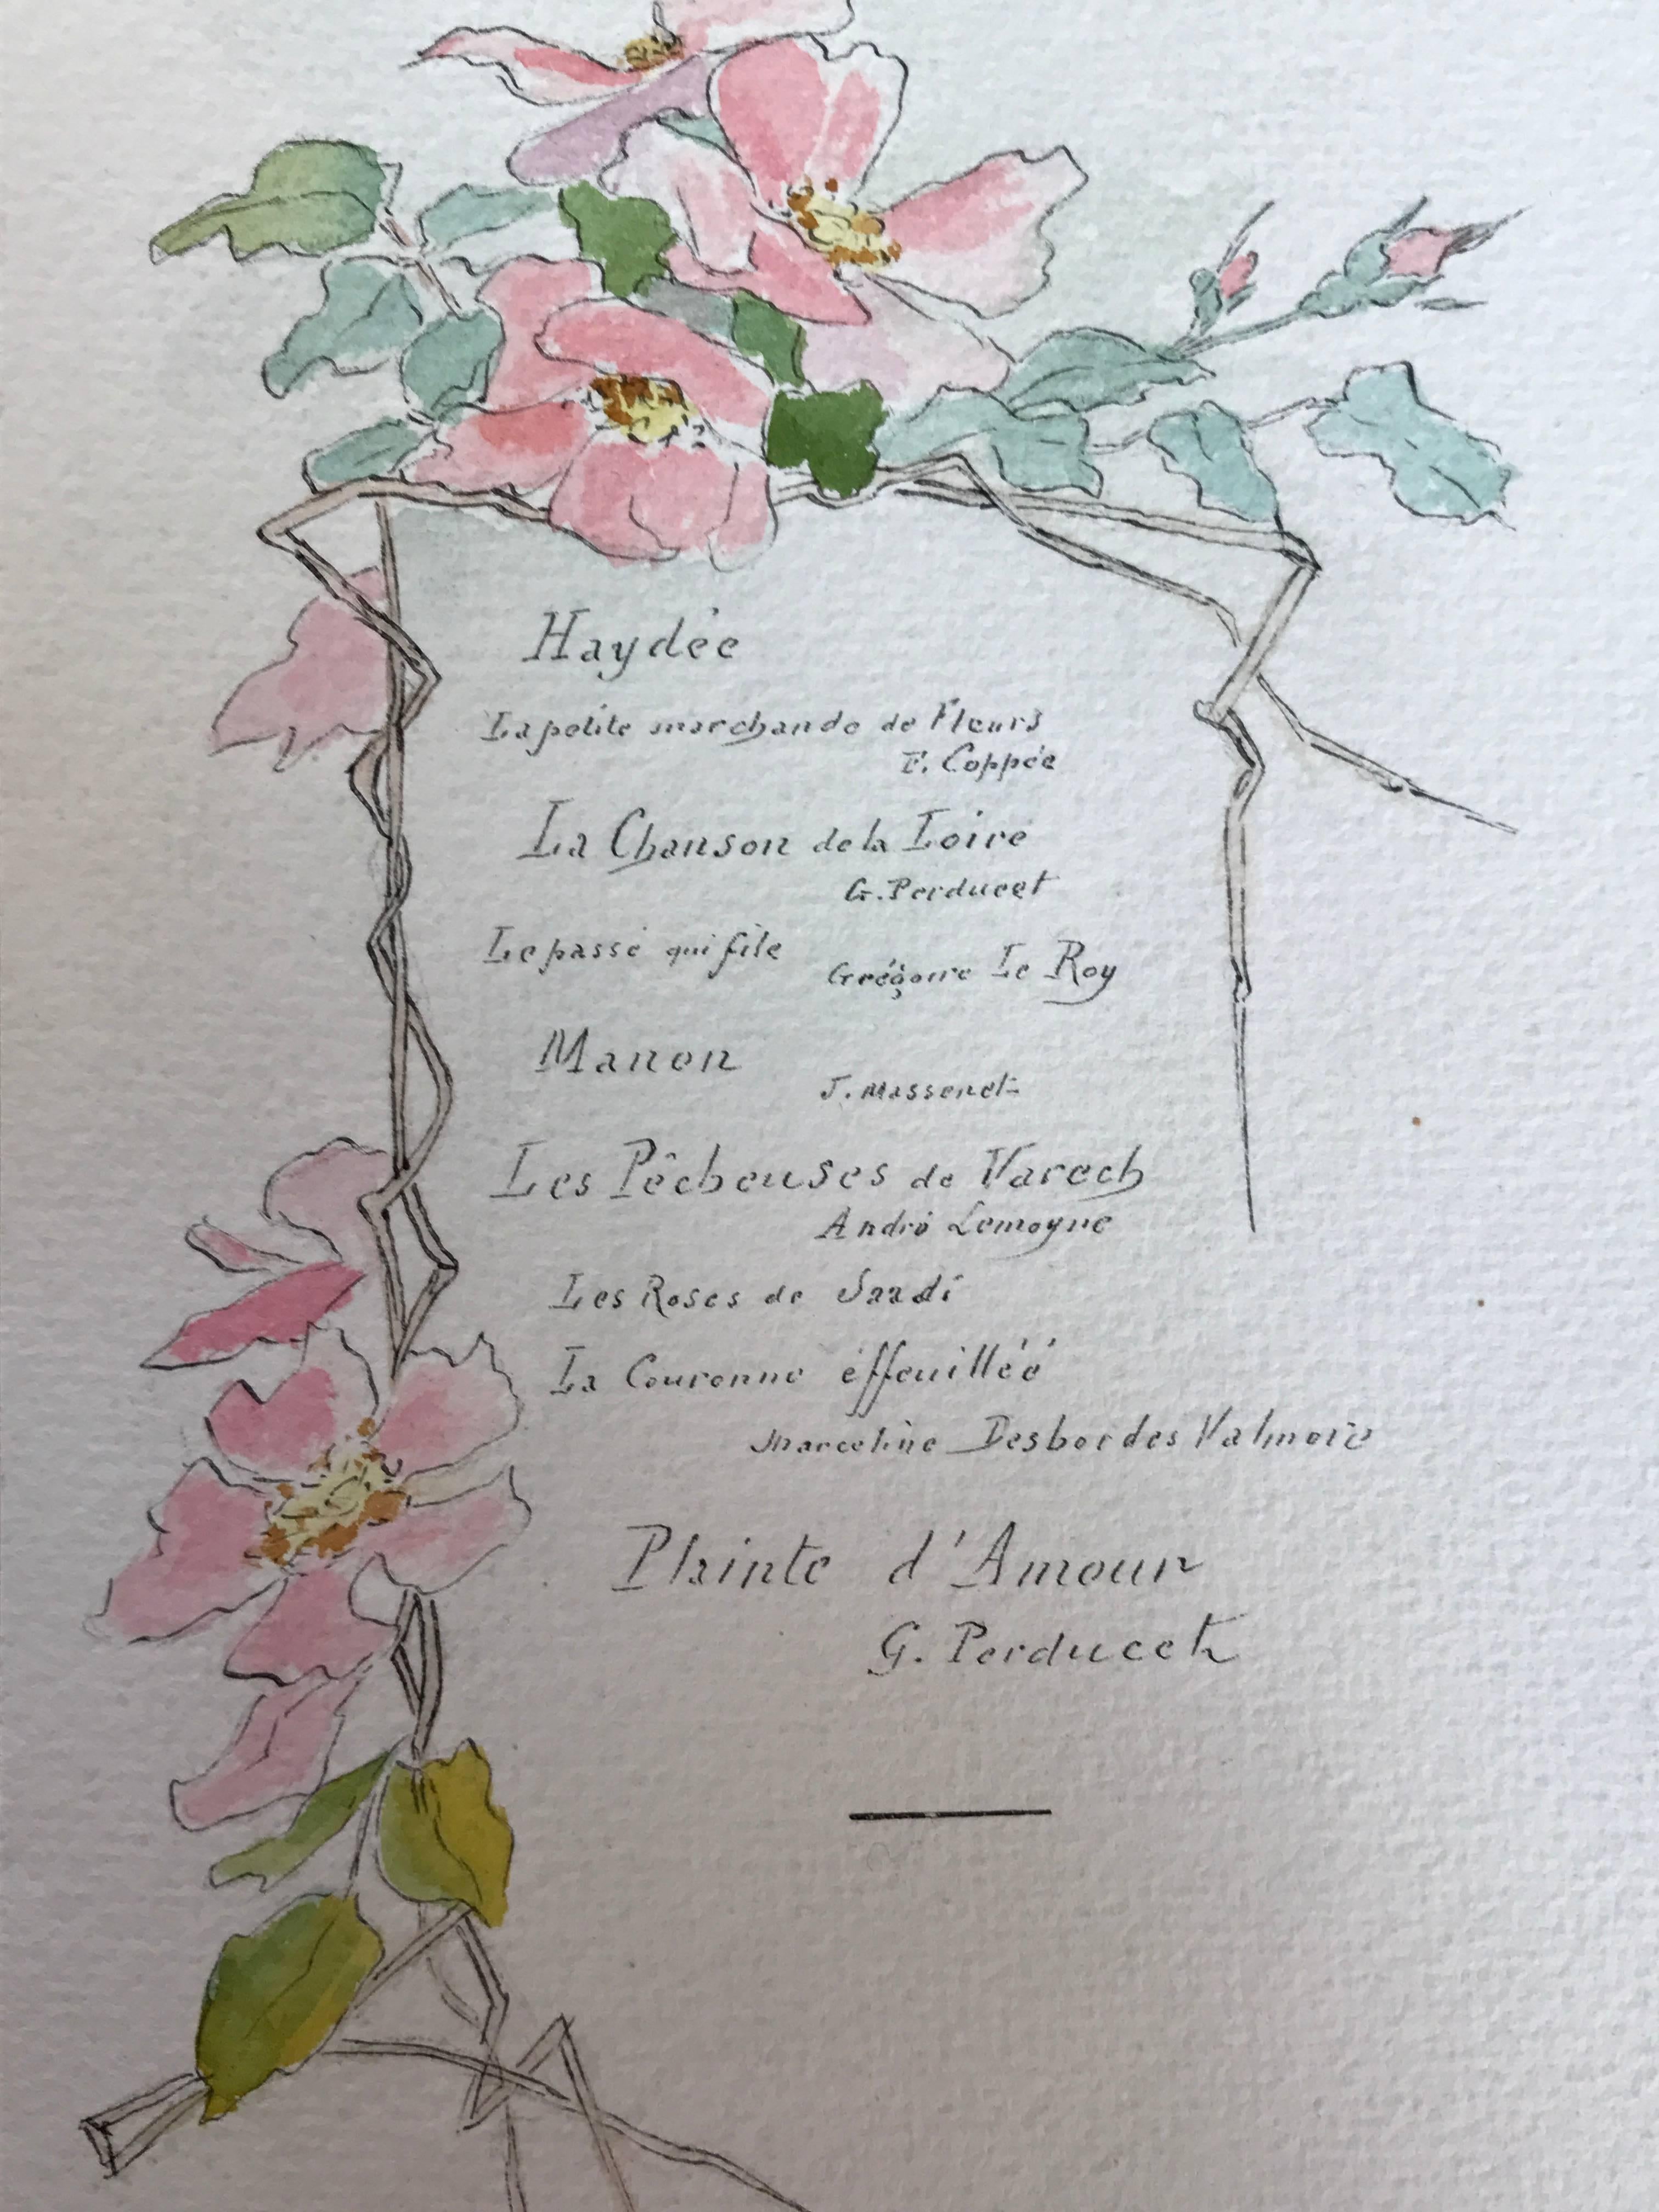 Haydée
La petite marchande de Fleurs
F. Coppée
La Chanson de la Loire
G. Perducet
Le passé qui file
Grégoire Le Roy
Manon
J. Massenet
Les Pêcheuses de Varech
André Lemoyne
Les Roses de Saadi
La Couronne éffeuilléé
Marceline Desbordes Valmore
Plainte d'Amour
G. Perducet